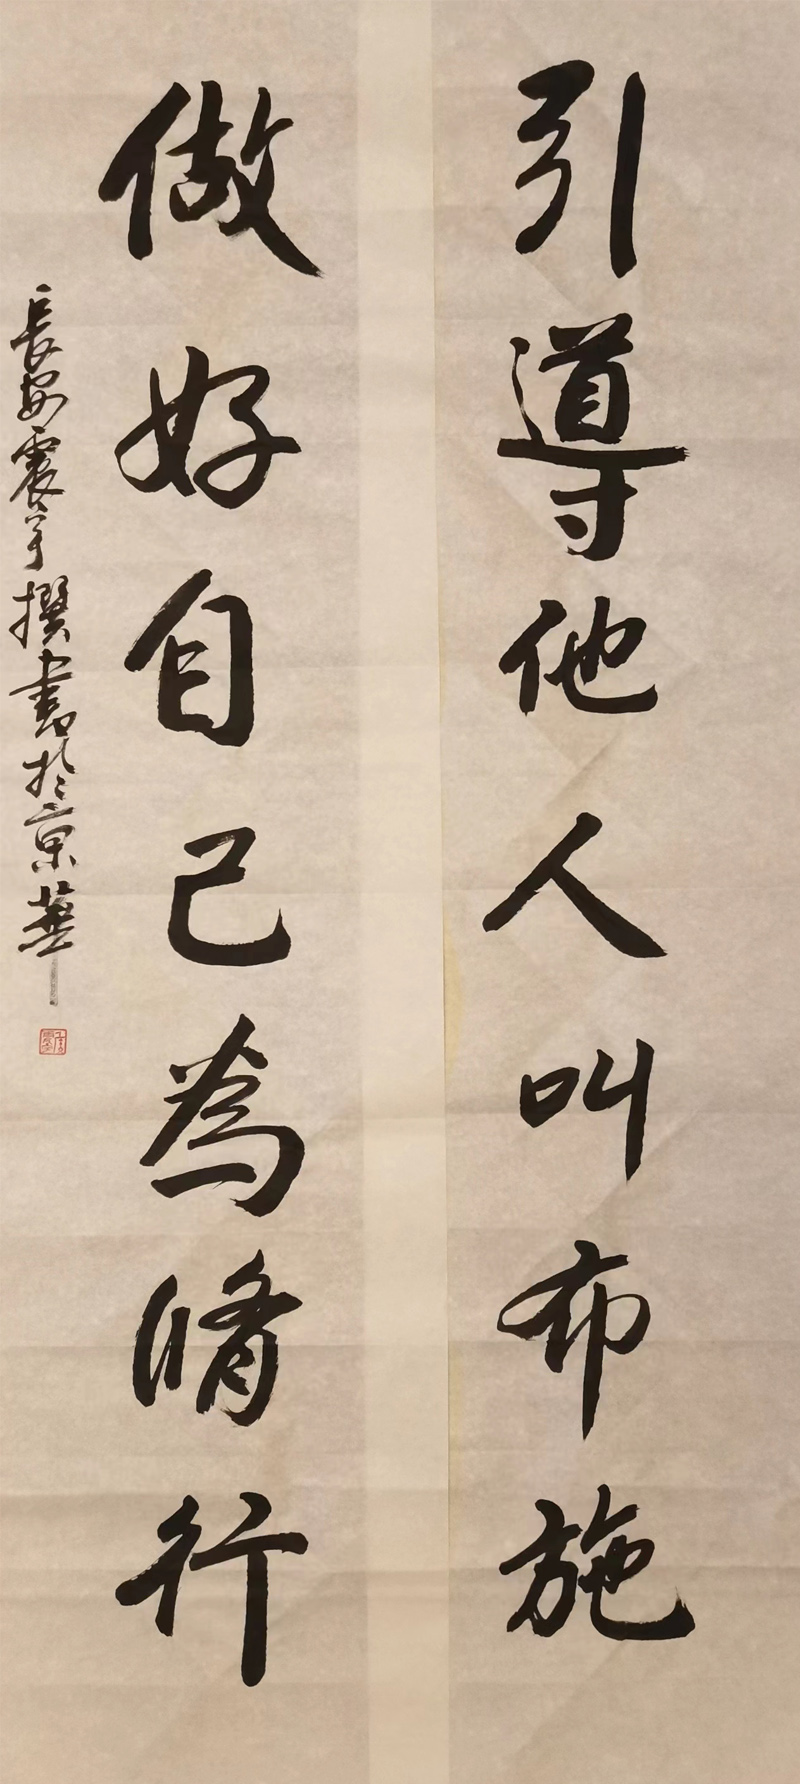 引導他人叫布施
做好自己為脩行
長安震宇撰書於京華